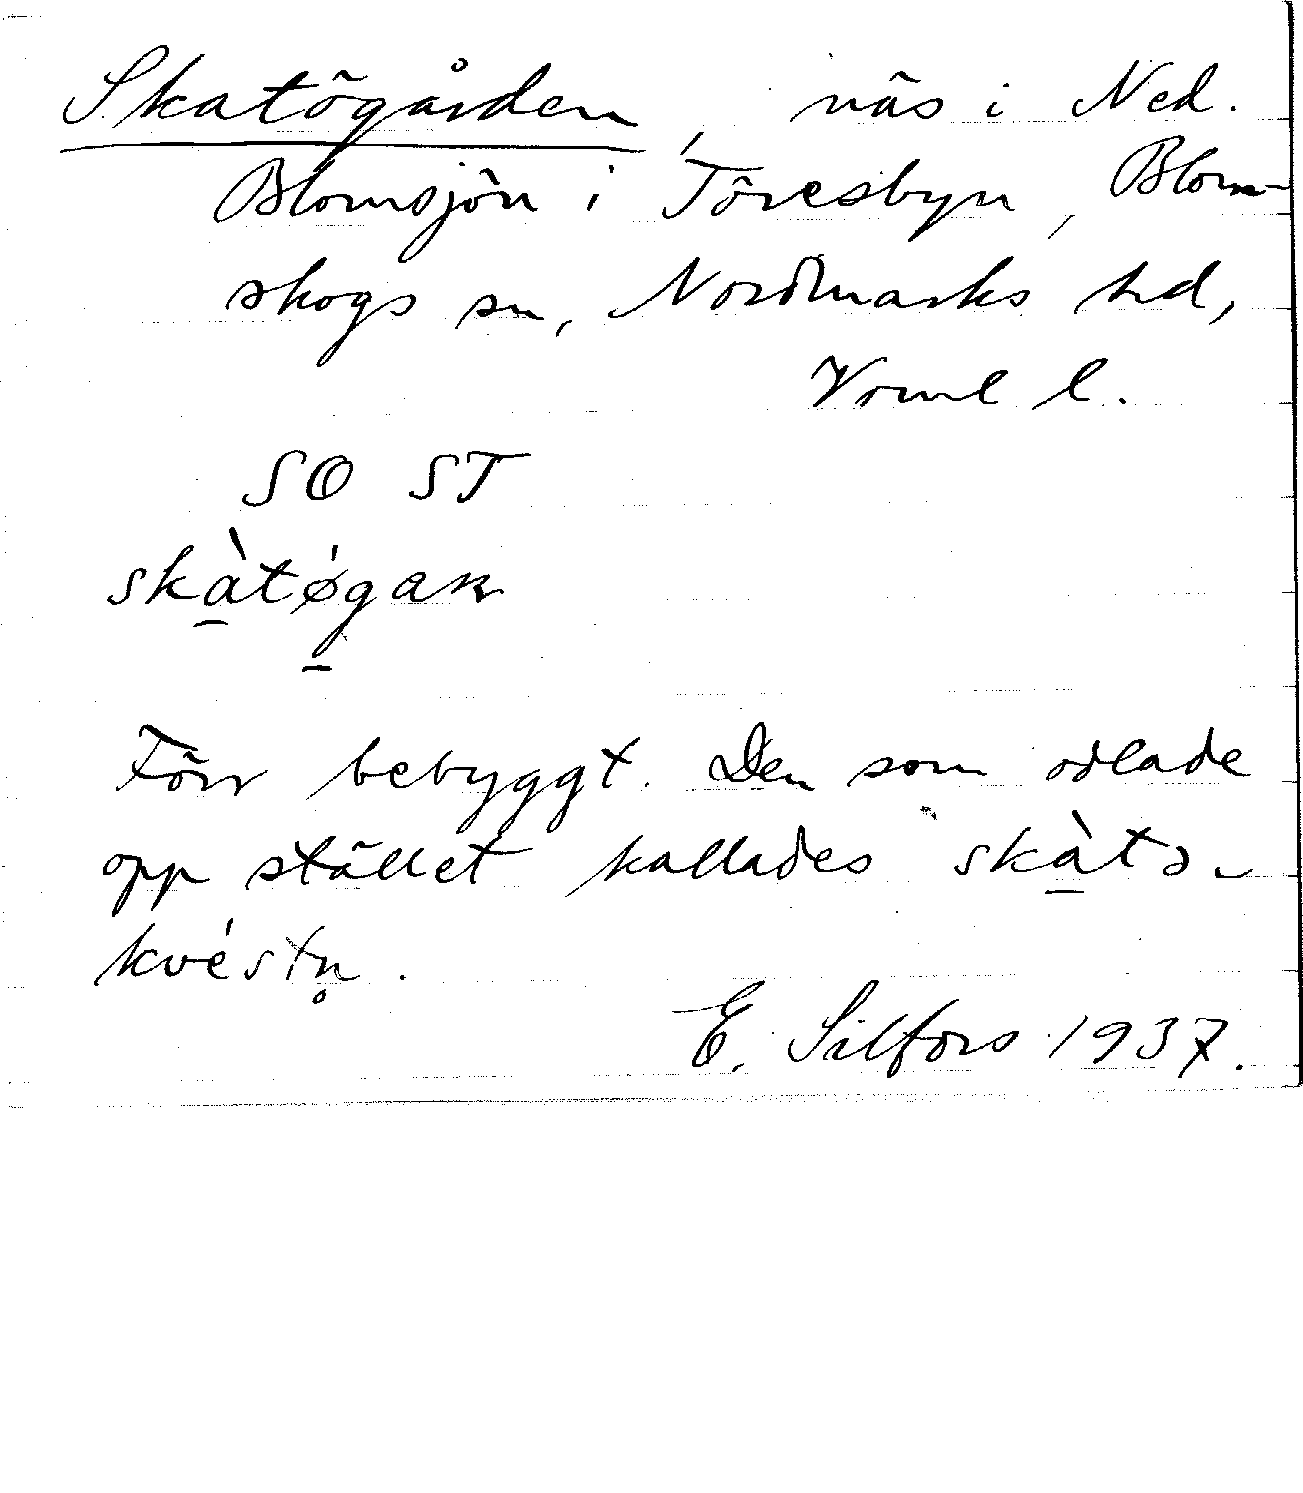 Skatögården, näs i Ned.
Blomsjön i Töresbyn, Blom-
skogs sn, Nordmarks hd,
Vrml l.
SO ST
skàtǿgaɳ
Förr bebyggt. Den som odlade
opp stället kallades skàtɔ-
kvéstn̥.
E. Silfors 1937.